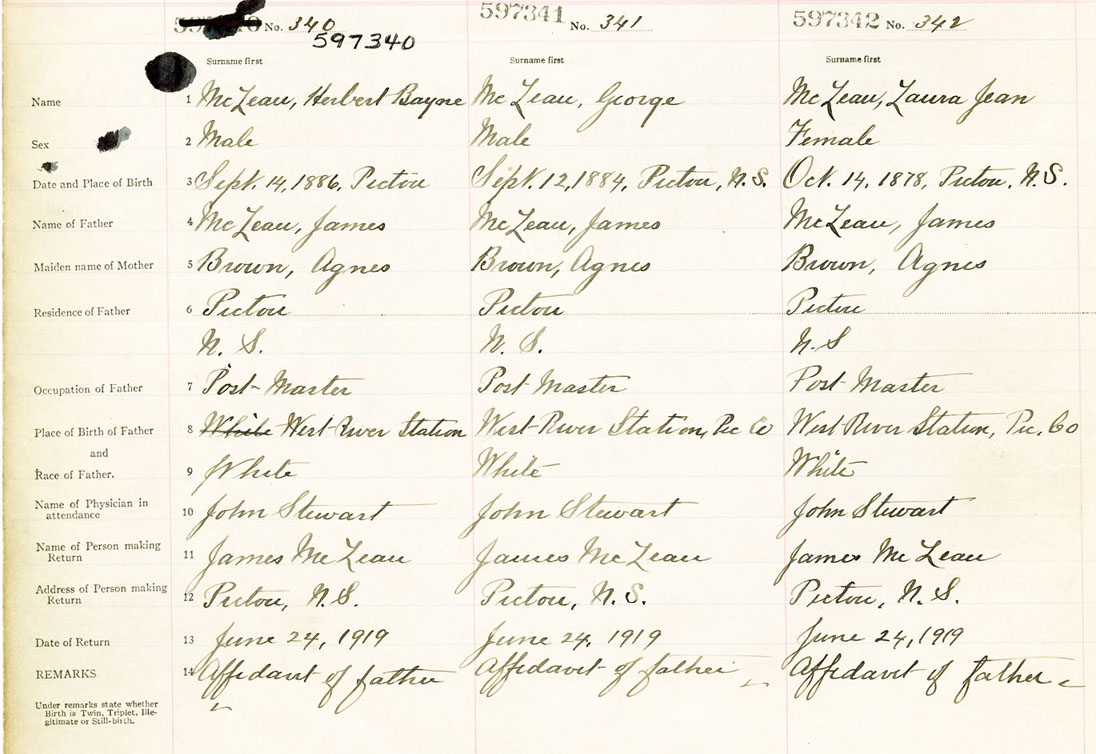 597341
597342
No. 340
No. 341
No. 342
597340
Surname first
Surname first
Surname first
Name 1 McLean, Herbert Bayne McLean, George McLean, Laura Jean
Sex 2 Male Male Female
Date and Place of Birth 3 Sept. 14, 1886, Pictou Sept. 12, 1884, Pictou, N.S. Oct. 14, 1878, Pictou, N.S.
Name of Father 4 McLean, James McLean, James McLean, James
Maiden name of Mother 5 Brown, Agnes Brown, Agnes Brown, Agnes
Residence of Father 6 Pictou Pictou Pictou
N. S. N. S. N.S
Occupation of Father 7 Post-Master Post Master Post Master
Place of Birth of Father 8 White West River Station West River Station, Pic Co West River Station, Pic. Co
and
Race of Father. 9 White White White
Name of Physician in
attendance 10 John Stewart John Stewart John Stewart
Name of Person making
Return 11 James McLean James McLean James McLean
Address of Person making
Return 12 Pictou, N.S. Pictou, N.S. Pictou, N.S.
Date of Return 13 June 24, 1919 June 24, 1919 June 24, 1919
REMARKS 14 Affidavit of father Affidavit of father Affidavit of father
Under remarks state whether
Birth is Twin, Triplet, Ille-
gitimate or Still-birth.